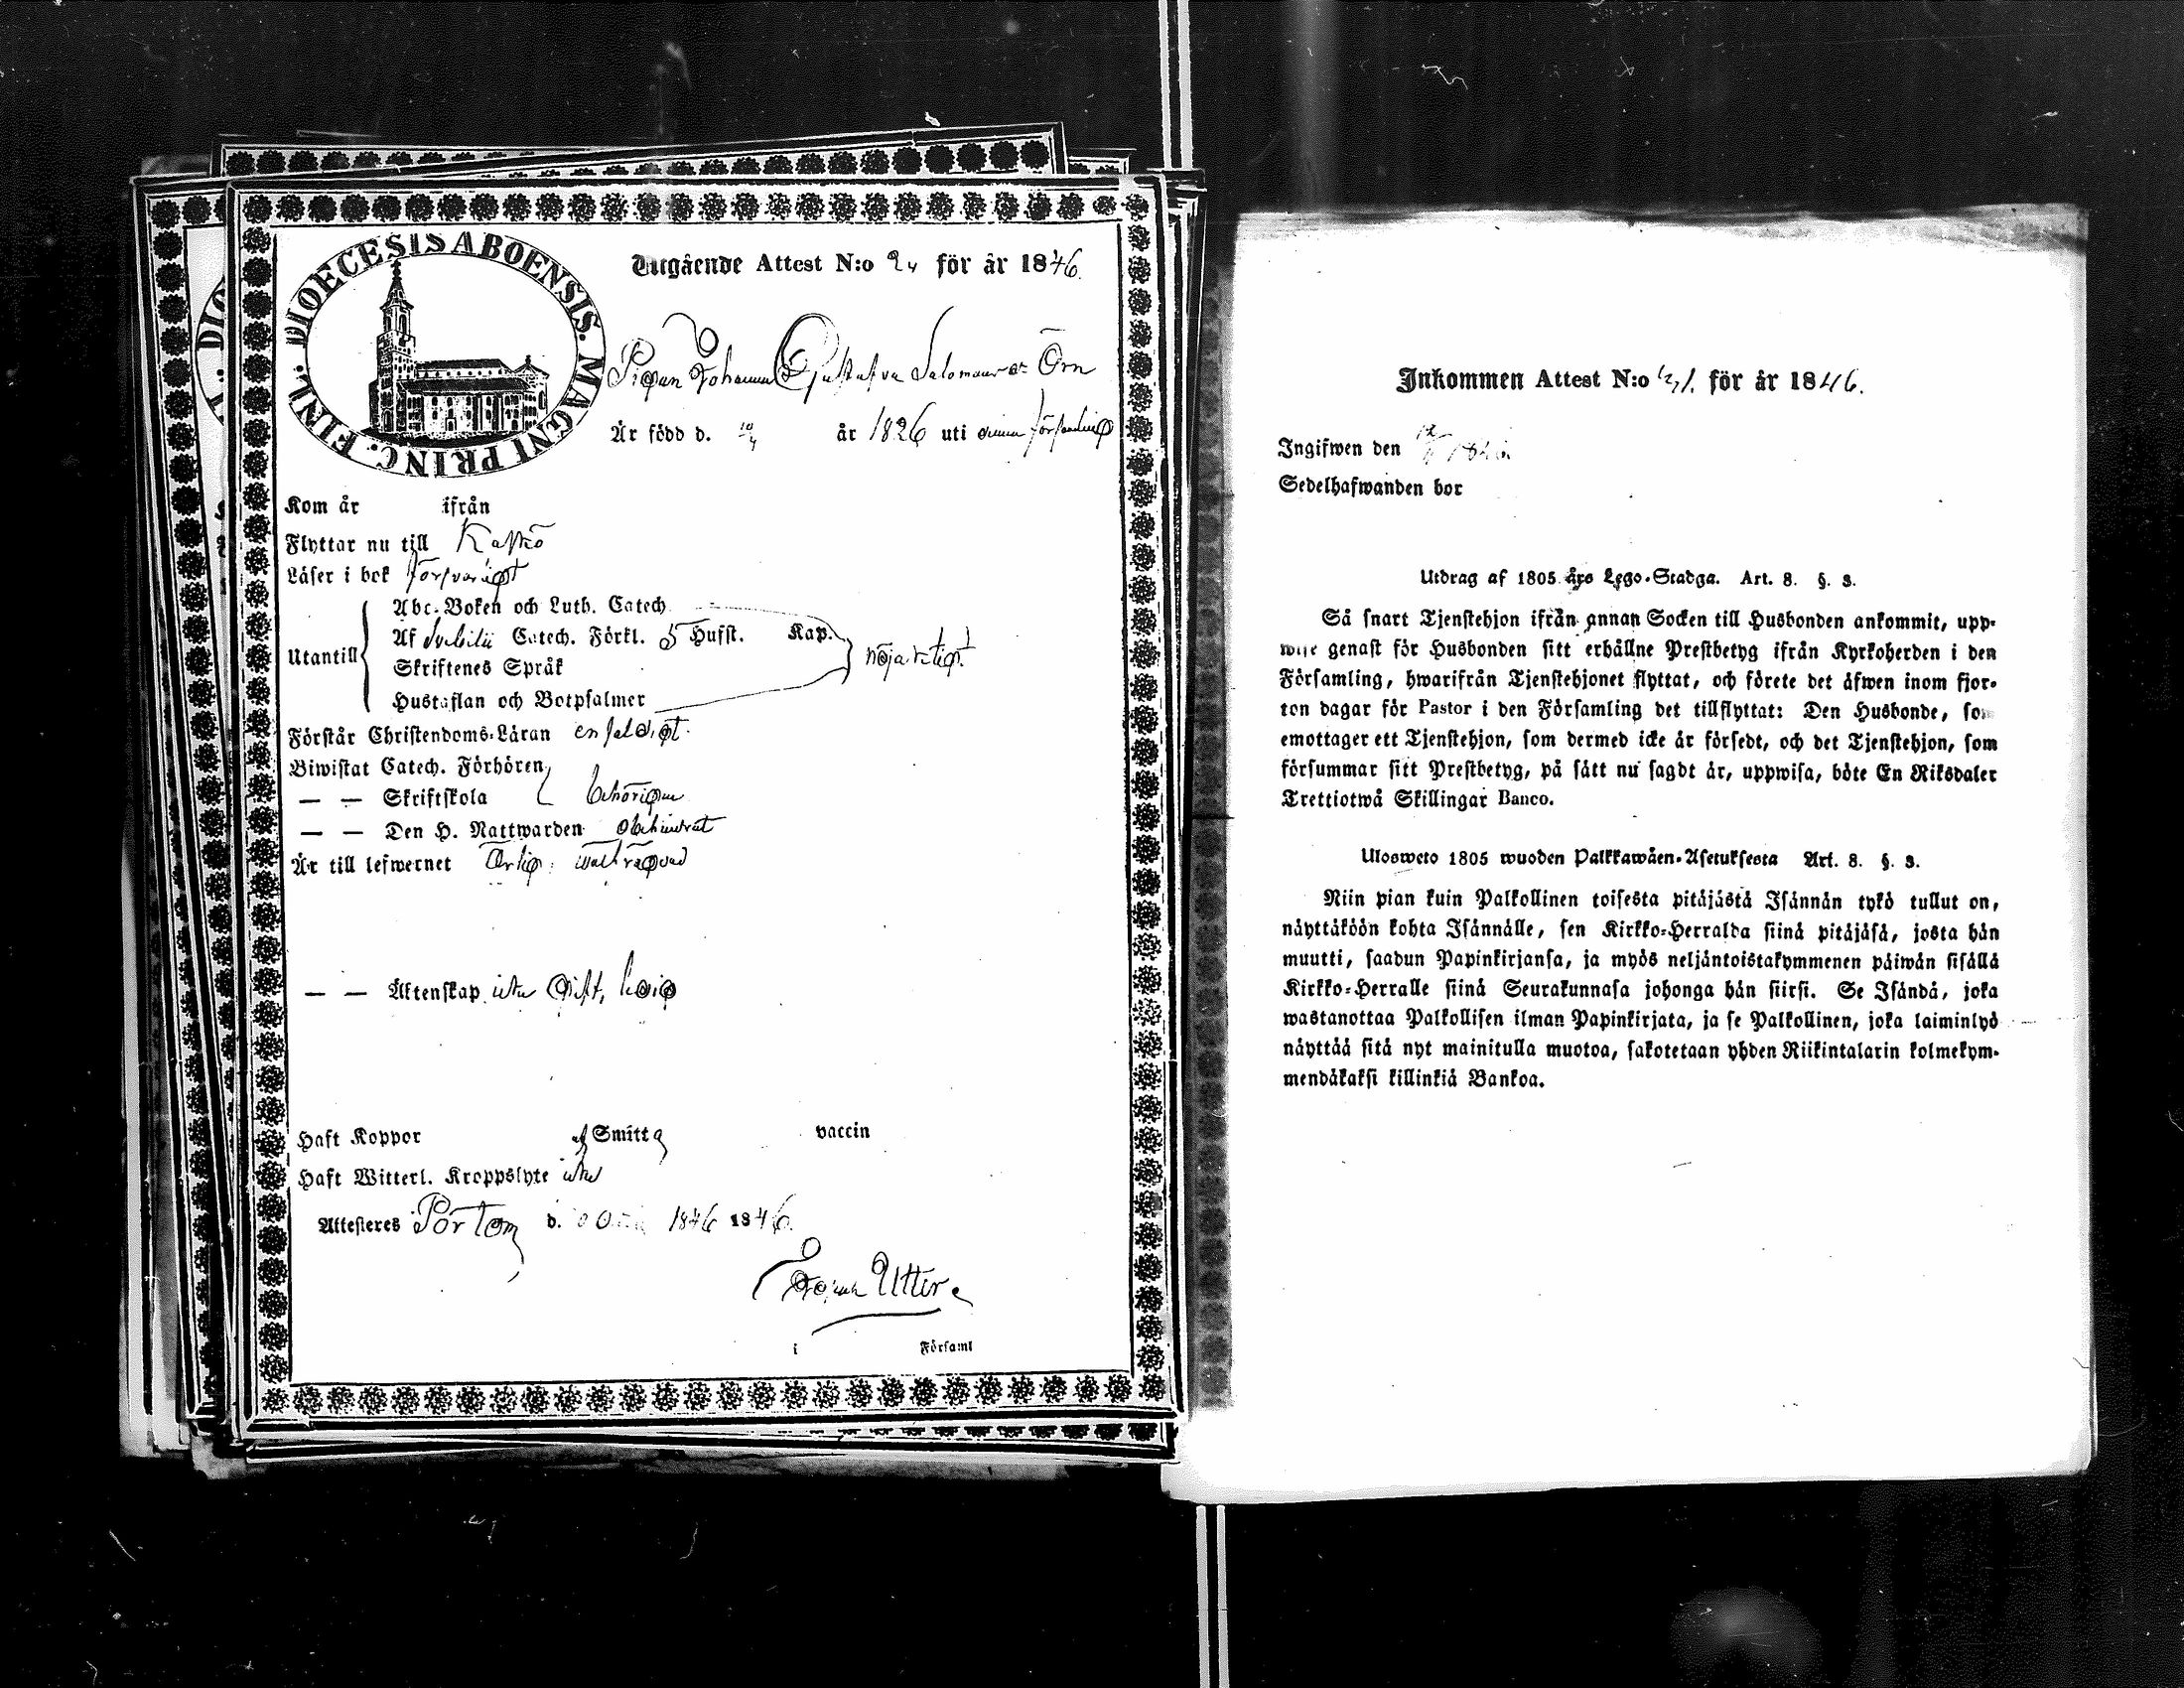 DIOECESIS ABOENSIS. MAGNI PRINC. FINL.
Utgående Attest N:o 24 för år 1846.
Pigan Johanna Gustafva Salomonsdr Örn
Är född d. 10/4 år 1826 uti denna församling
Kom år ifrån
Flyttar nu till Kaskö
Läser i bok försvarligt
Utantill
Abc-Boken och Luth. Catech.
Af Svebilii Catech. Förkl. 5 Hufst. Kap.
Skriftenes Språk
Hustaflan och Botpsalmer
nöjaktigt
Förstår Christendoms-Läran enfaldigt.
Biwistat Catech. Förhören
— — Skriftskola behörigen
— — Den H. Nattwarden obehindrat
Är till lefwernet Ärlig
— — Äktenskap icke Gift, ledig
Haft Koppor af Smitta vaccin
Haft Witterl. Kroppslyte icke
Attesteres Pörtom d. 1846 1846.
Utter
i Församl
Inkommen Attest N:o för år 1846.
Ingifwen den
Sedelhafwanden bor
Utdrag af 1805 års Lego-Stadga. Art. 8. §. 3.
Så snart Tjenstehjon ifrån annan Socken till Husbonden ankommit, upp-
wise genast för Husbonden sitt erhållne Prestbetyg ifrån Kyrkoherden i den
Församling, hwarifrån Tjenstehjonet flyttat, och förete det äfwen inom fjor-
ton dagar för Pastor i den Församling det tillflyttat: Den Husbonde, som
emottager ett Tjenstehjon, som dermed icke är försedt, och det Tjenstehjon, som
försummar sitt Prestbetyg, på sätt nu sagdt är, uppwisa, böte En Riksdaler
Trettiotwå Skillingar Banco.
Ulosweto 1805 wuoden Palkkawäen-Asetuksesta Art. 8. §. 3.
Niin pian kuin Palkollinen toisesta pitäjästä Isännän tykö tullut on,
näyttäköön kohta Isännälle, sen Kirkko-Herralda siinä pitäjäsä, josta hän
muutti, saadun Papinkirjansa, ja myös neljäntoistakymmenen päiwän sisällä
Kirkko-Herralle siinä Seurakunnasa johonga hän siirsi. Se Isändä, joka
wastanottaa Palkollisen ilman Papinkirjata, ja se Palkollinen, joka laiminlyö
näyttää sitä nyt mainitulla muotoa, sakotetaan yhden Riikintalarin kolmekym-
mendäkaksi killinkiä Bankoa.